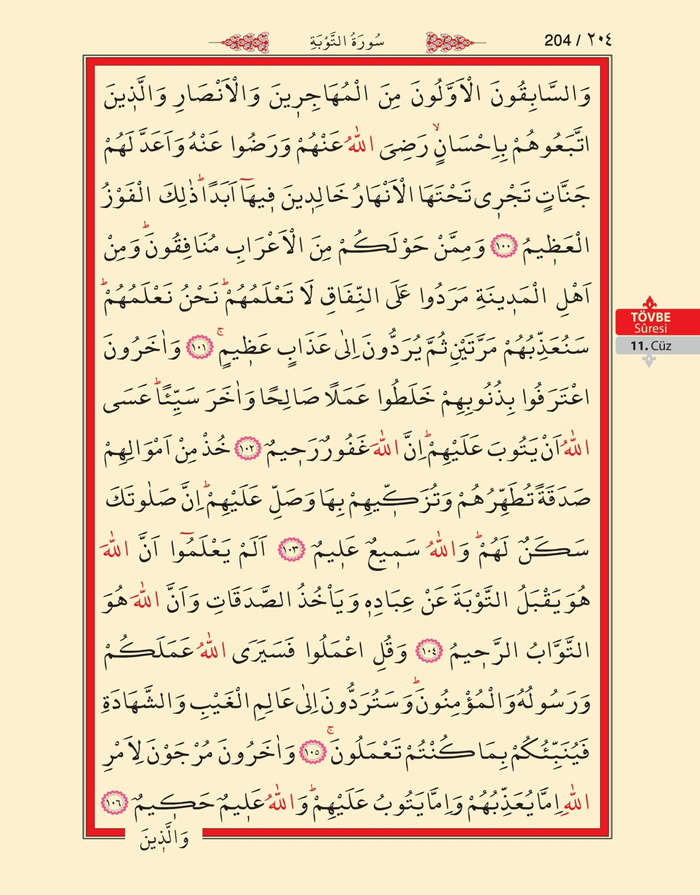 سُورَةُ التَّوْبَةِ
204 / ٢٠٤
وَالسَّابِقُونَ الْاَوَّلُونَ مِنَ الْمُهَاجِرِينَ وَالْاَنْصَارِ وَالَّذِينَ
اتَّبَعُوهُمْ بِاِحْسَانٍۙ رَضِيَ اللّٰهُ عَنْهُمْ وَرَضُوا عَنْهُ وَاَعَدَّ لَهُمْ
جَنَّاتٍ تَجْرِي تَحْتَهَا الْاَنْهَارُ خَالِدِينَ فِيهَٓا اَبَدًاۜ ذٰلِكَ الْفَوْزُ
الْعَظِيمُ ﴿١٠٠﴾ وَمِمَّنْ حَوْلَكُمْ مِنَ الْاَعْرَابِ مُنَافِقُونَۜ وَمِنْ
اَهْلِ الْمَدِينَةِ مَرَدُوا عَلَى النِّفَاقِ لَا تَعْلَمُهُمْۜ نَحْنُ نَعْلَمُهُمْۜ
سَنُعَذِّبُهُمْ مَرَّتَيْنِ ثُمَّ يُرَدُّونَ اِلٰى عَذَابٍ عَظِيمٍۚ ﴿١٠١﴾ وَاٰخَرُونَ
اعْتَرَفُوا بِذُنُوبِهِمْ خَلَطُوا عَمَلًا صَالِحًا وَاٰخَرَ سَيِّئًاۜ عَسَى
اللّٰهُ اَنْ يَتُوبَ عَلَيْهِمْۜ اِنَّ اللّٰهَ غَفُورٌ رَحِيمٌ ﴿١٠٢﴾ خُذْ مِنْ اَمْوَالِهِمْ
صَدَقَةً تُطَهِّرُهُمْ وَتُزَكِّيهِمْ بِهَا وَصَلِّ عَلَيْهِمْۜ اِنَّ صَلٰوتَكَ
سَكَنٌ لَهُمْۜ وَاللّٰهُ سَمِيعٌ عَلِيمٌ ﴿١٠٣﴾ اَلَمْ يَعْلَمُٓوا اَنَّ اللّٰهَ
هُوَ يَقْبَلُ التَّوْبَةَ عَنْ عِبَادِهِ وَيَأْخُذُ الصَّدَقَاتِ وَاَنَّ اللّٰهَ هُوَ
التَّوَّابُ الرَّحِيمُ ﴿١٠٤﴾ وَقُلِ اعْمَلُوا فَسَيَرَى اللّٰهُ عَمَلَكُمْ
وَرَسُولُهُ وَالْمُؤْمِنُونَۜ وَسَتُرَدُّونَ اِلٰى عَالِمِ الْغَيْبِ وَالشَّهَادَةِ
فَيُنَبِّئُكُمْ بِمَا كُنْتُمْ تَعْمَلُونَۚ ﴿١٠٥﴾ وَاٰخَرُونَ مُرْجَوْنَ لِاَمْرِ
اللّٰهِ اِمَّا يُعَذِّبُهُمْ وَاِمَّا يَتُوبُ عَلَيْهِمْۜ وَاللّٰهُ عَلِيمٌ حَكِيمٌ ﴿١٠٦﴾
وَالَّذِينَ
TÖVBE
Sûresi
11. Cüz